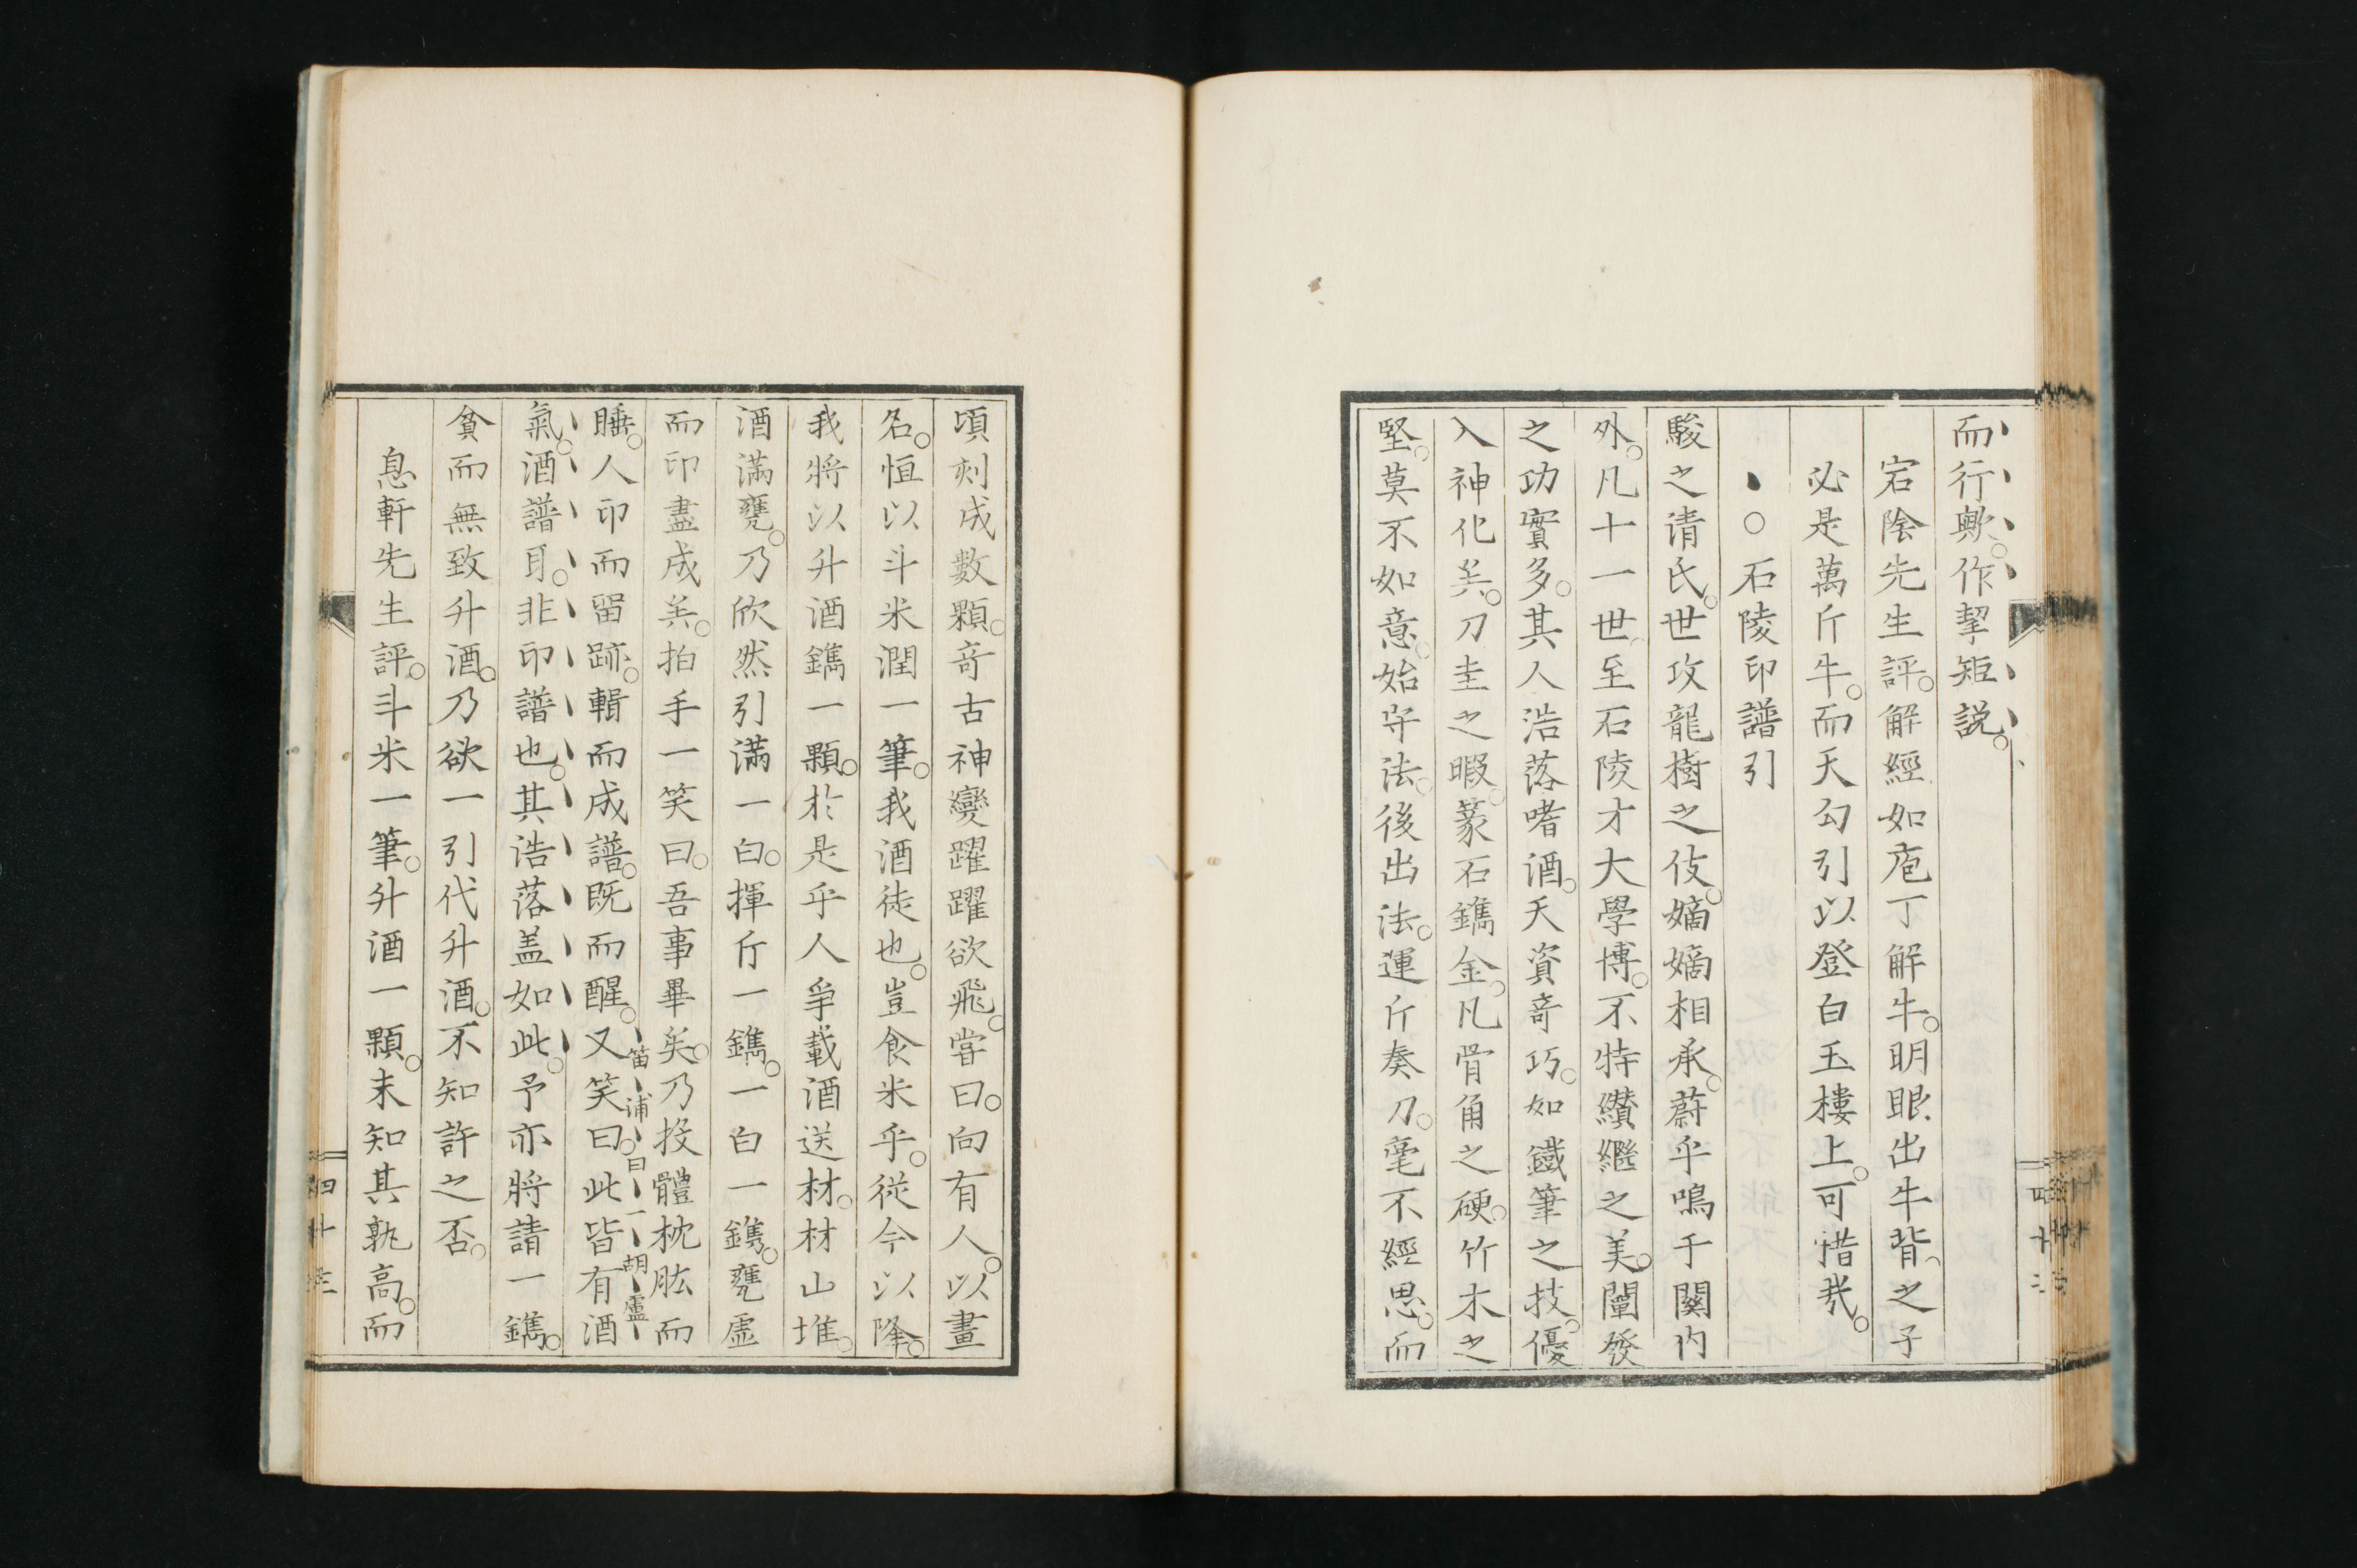 而行歟。作挈矩説。
宕陰先生評。解經如庖丁解牛。明眼出牛背之子
必是萬斤牛。而天勾引以登白玉樓上。可惜哉。
○石陵印譜引
駿之请氏。世攻龍樹之伎。嫡嫡相承。蔚乎鳴于關内
外。凡十一世。至石陵才大學博。不特纘繼之美。闡發
之功實多。其人浩落嗜酒。天資竒巧。如鐵筆之技。優
入神化矣。刀圭之暇。篆石鐫金。凡骨角之硬。竹木之
堅。莫不如意。始守法。後出法。運斤奏刀。毫不經思。而
頃刻成數顆。竒古神變躍躍欲飛。嘗曰。向有人。以畫
名。恒以斗米潤一筆。我酒徒也。豈食米乎。從今以降。
我將以升酒鐫一顆。於是乎人爭載酒送材。材山堆。
酒滿甕。乃欣然引滿一白。揮斤一鐫。一白一鐫。甕虚
而印盡成矣。拍手一笑曰。吾事畢矣。乃投體枕肱而
笛浦曰一胡盧
睡。人印而留跡。輯而成譜。既而醒。又笑曰。此皆有酒
氣。酒譜耳。非印譜也。其浩落盖如此。予亦將請一鐫。
貧而無致升酒。乃欲一引代升酒。不知許之否。
息軒先生評。斗米一筆。升酒一顆。未知其孰高。而
四十三